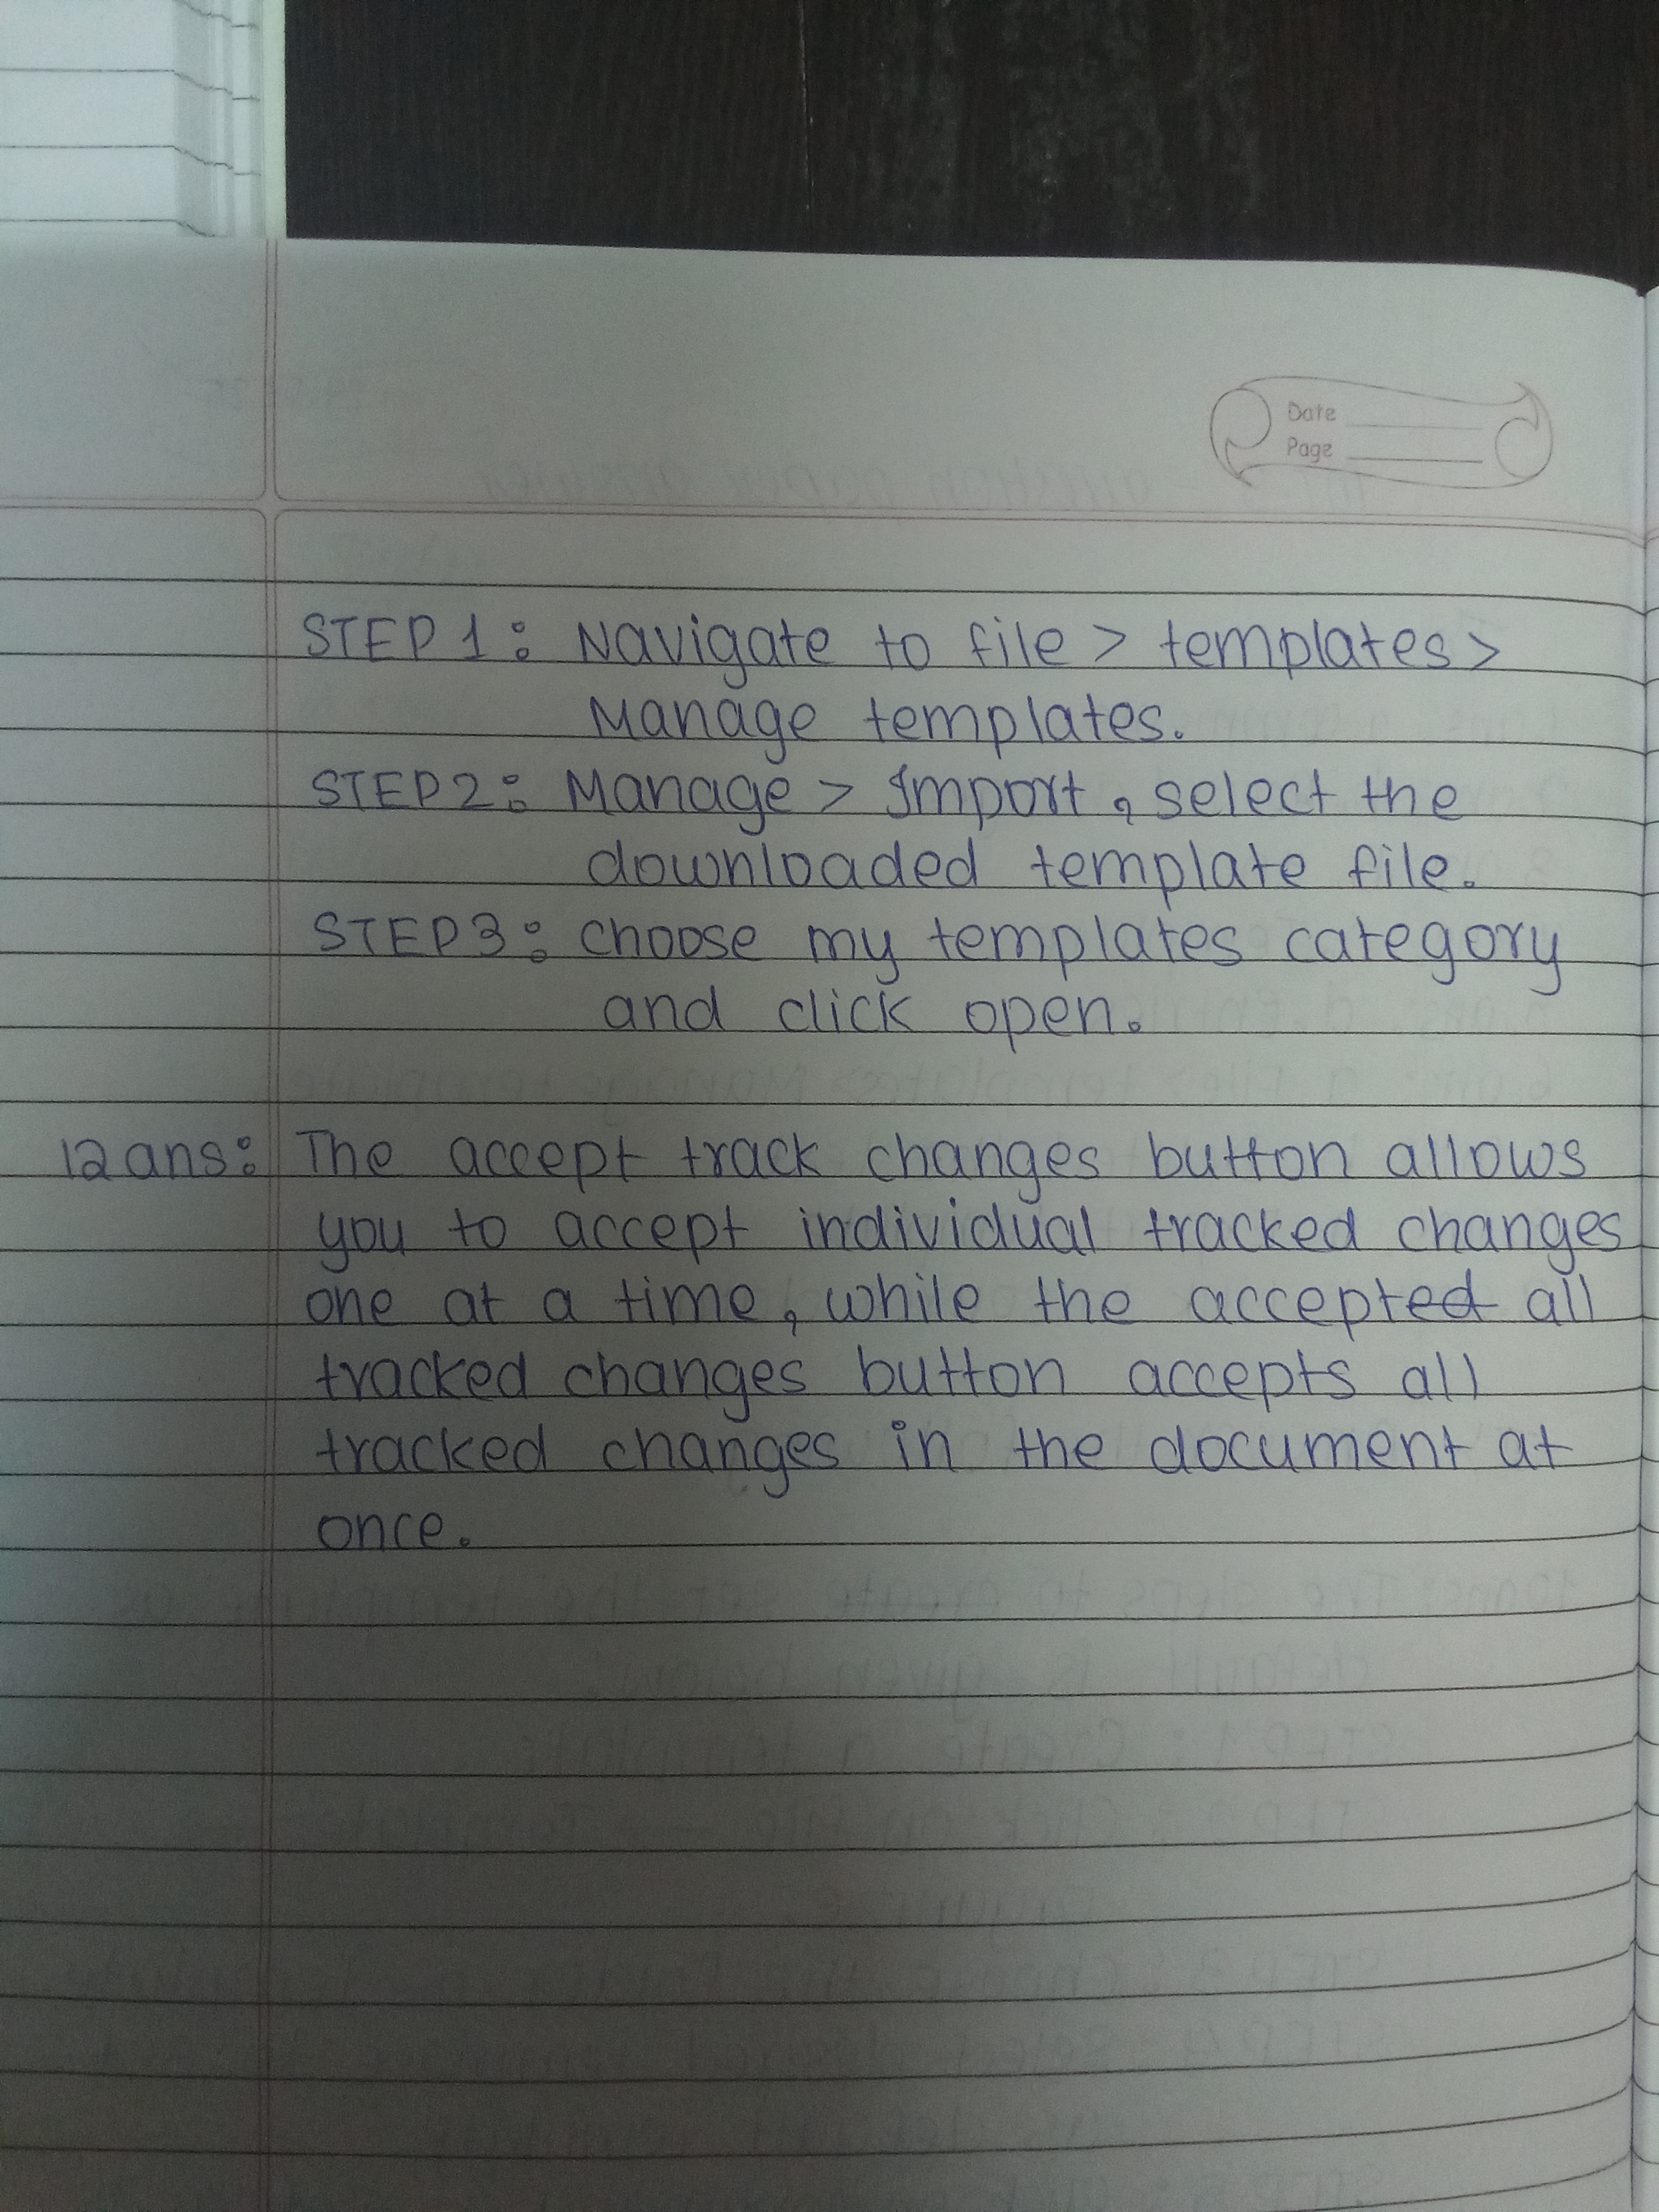 Date
Page
STEP 1: Navigate to file > templates >
Manage templates.
STEP 2: Manage > Import, select the
downloaded template file.
STEP 3: choose my templates category
and click open.
12 ans: The accept track changes button allows
you to accept individual tracked changes
one at a time, while the accepted all
tracked changes button accepts all
tracked changes in the document at
once.